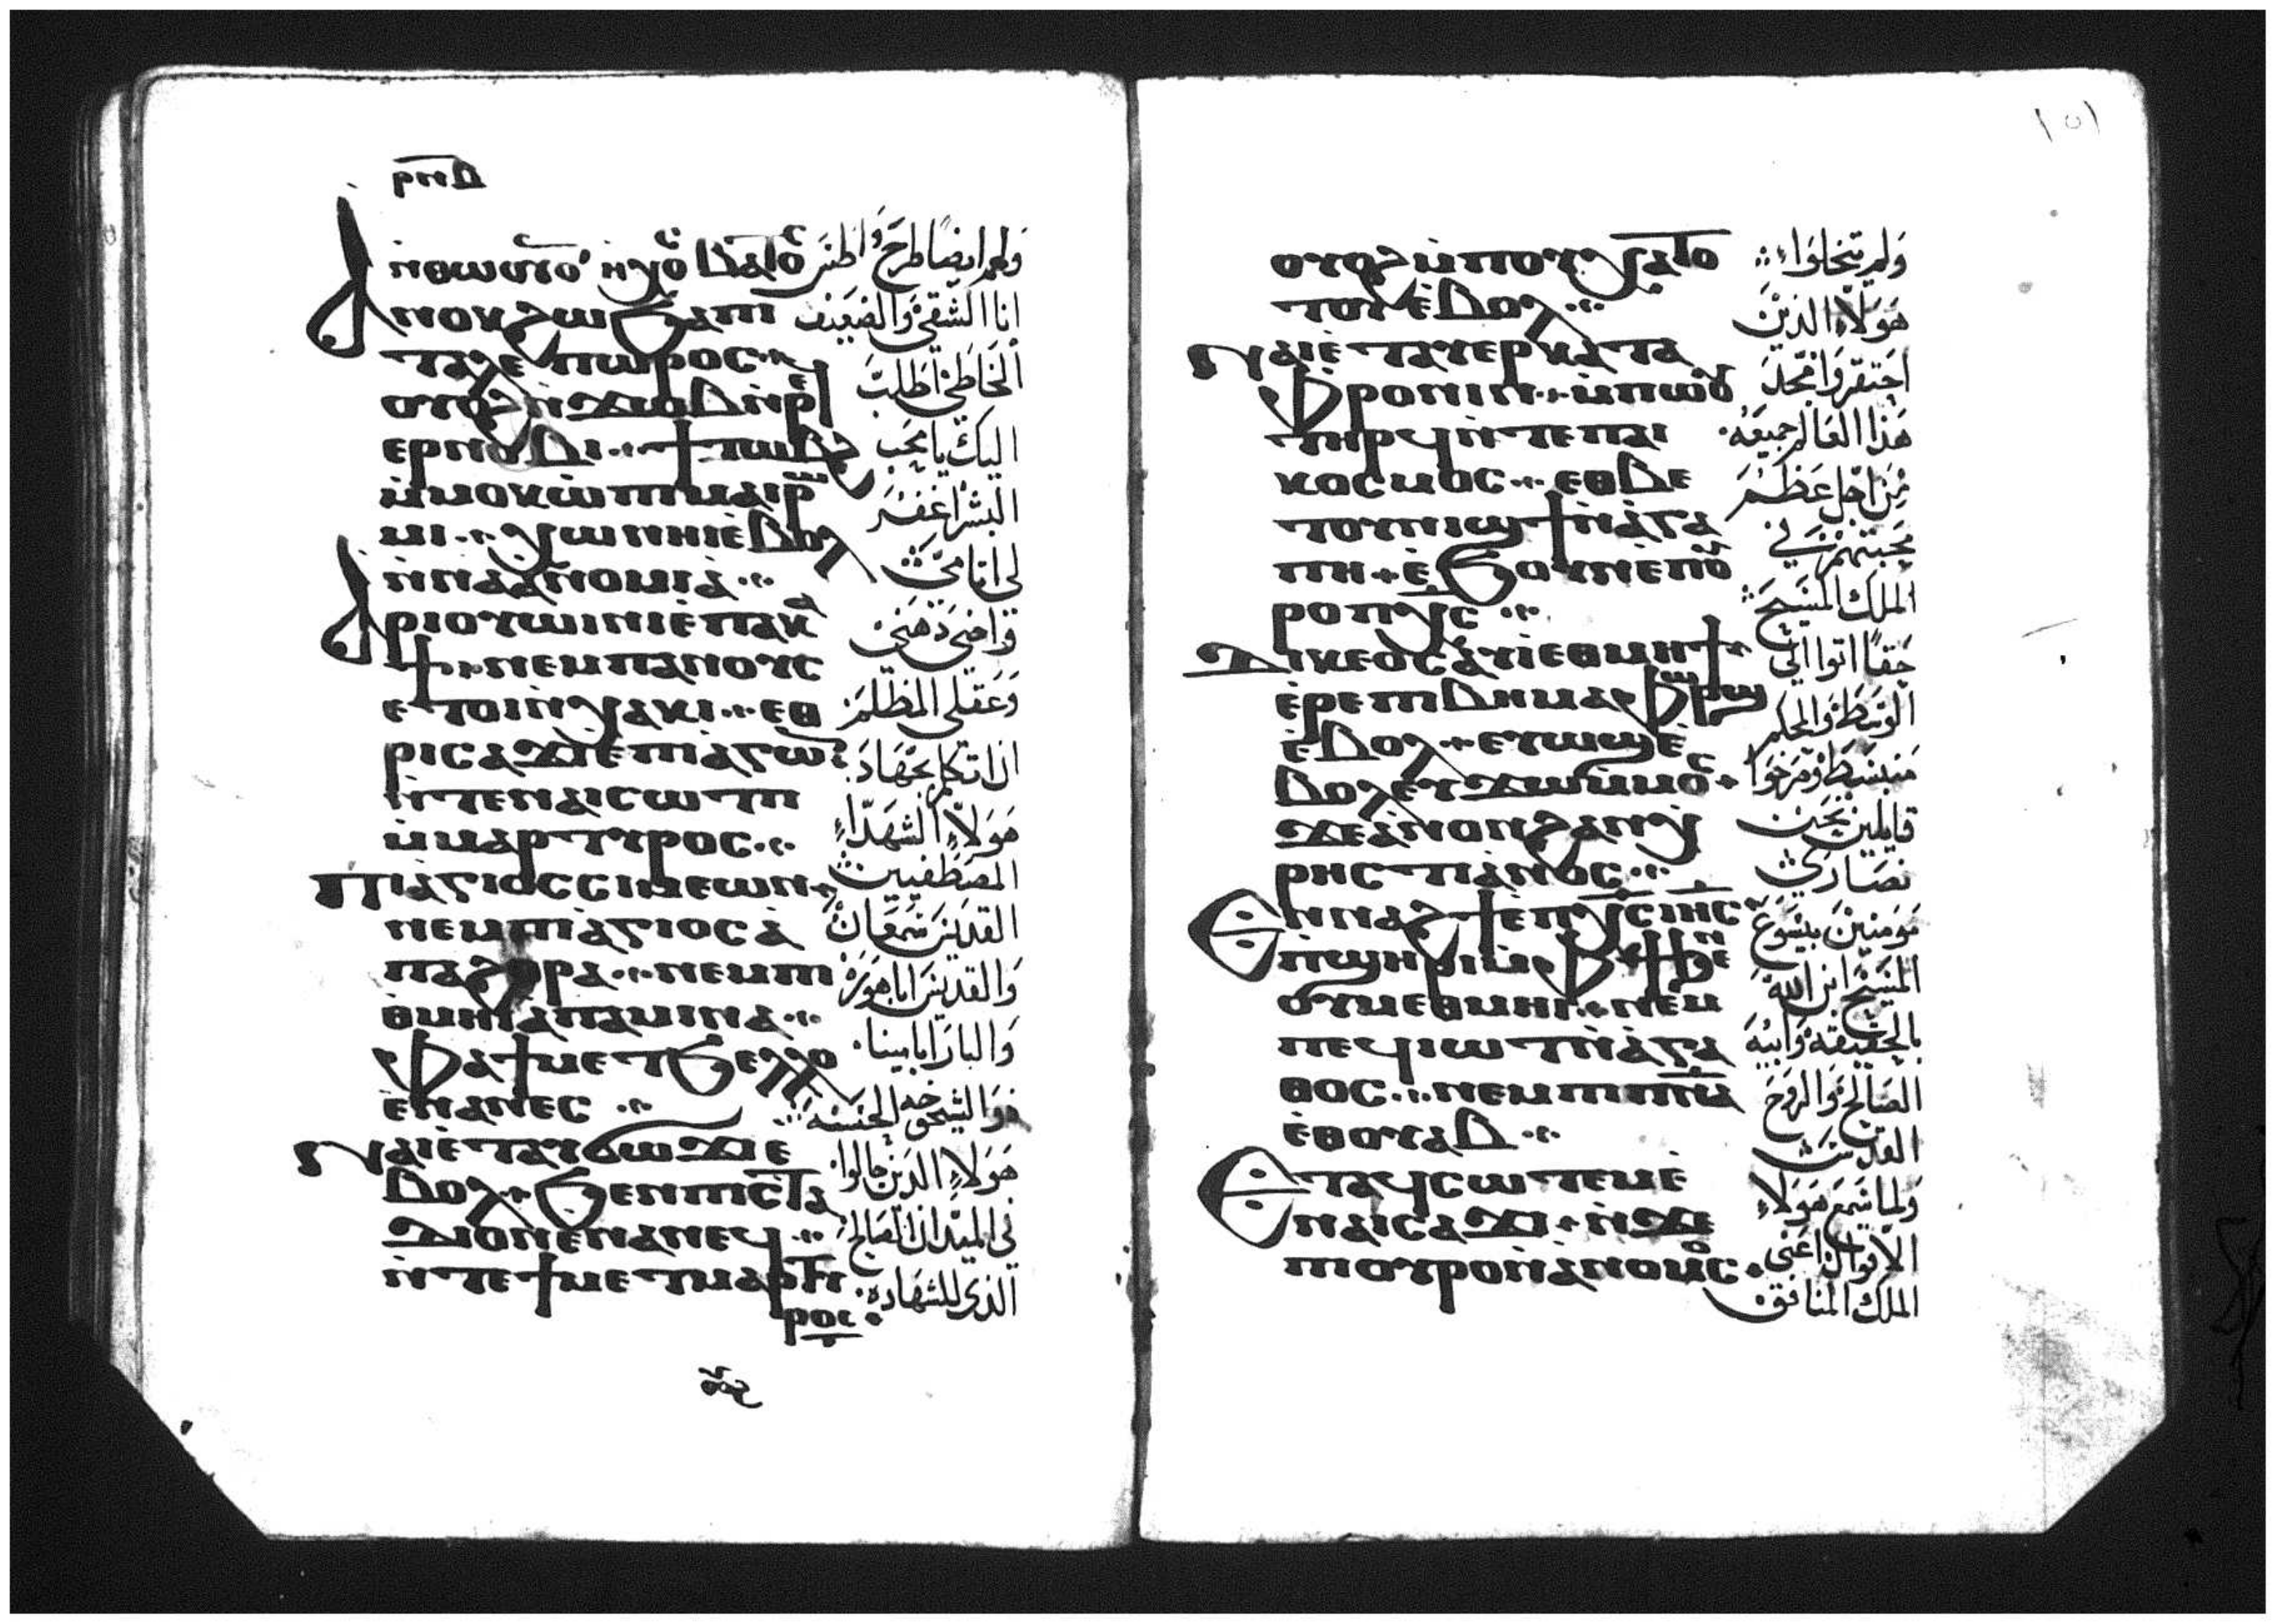 ⲣⲛⲃ
ⲛⲑⲱⲟⲩ
ⲁⲛⲟⲕ ϧⲱ ϧⲁ ⲡⲓ
ⲧⲁⲗⲉⲡⲱⲣⲟⲥ
ⲟⲩⲟϩ ⲛϫⲱⲃ ⲛⲣⲉϥ
ⲉⲣⲛⲟⲃⲓ ϯⲧⲱⲃϩ
ⲙⲙⲟⲕ ⲱ ⲡⲓⲙⲁⲓⲣⲱ
ⲙⲓ ⲭⲱ ⲛⲏⲓ ⲉⲃⲟⲗ
ⲛⲛⲁⲁⲛⲟⲙⲓⲁ
ⲁⲣⲓⲟⲩⲱⲓⲛⲓ ⲉⲡⲁⲕⲁ
ϯ ⲛⲉⲙ ⲡⲁⲛⲟⲩⲥ
ⲉⲧⲟⲓ ⲛⲭⲁⲕⲓ ⲉⲑ
ⲣⲓⲥⲁϫⲓ ⲉⲡⲓⲁⲅⲱⲛ
ⲛⲧⲉ ⲛⲁⲓⲥⲱⲧⲡ
ⲙⲙⲁⲣⲧⲩⲣⲟⲥ
ⲡⲓⲁⲅⲓⲟⲥ ⲥⲓⲙⲉⲱⲛ
ⲛⲉⲙ ⲡⲓⲁⲅⲓⲟⲥ ⲁ
ⲡⲁ ϩⲟⲣⲁ ⲛⲉⲙ ⲡⲓ
ⲑⲙⲏⲓ ⲁⲡⲁ ⲙⲓⲛⲁ
ⲫⲁ ϯⲙⲉⲧϧⲉⲗⲗⲟ
ⲉⲛⲁⲛⲉⲥ
ⲛⲁⲓ ⲉⲧⲁⲩϭⲱϫⲓ ⲉ
ⲃⲟⲗ ϧⲉⲛ ⲡⲓⲥⲧⲁ
ⲇⲓⲟⲛ ⲉⲛⲁⲛⲉϥ
ⲛⲧⲉ ϯⲙⲉⲧⲙⲁⲣⲧⲏ
ⲣⲟⲥ
انا الشقي والضعيف
الخاطي اطلب
اليك يا محب
البشر اغفر
لي اثامي
واضي ذهني
وعقلي المظلم
ان اتكلم بجهاد
هولاء الشهداء
المصطفيين
القديس سمعان
والقديس ابا هور
والبار ابا مينا
ذو الشيخوخه الحسنه
هولاء الذين جالوا
في الميدان الصالح
الذي للشهاده
١٥١
ⲟⲩⲟϩ ⲙⲡⲟⲩⲭⲁⲧⲟ
ⲧⲟⲩ ⲉⲃⲟⲗ
ⲛⲁⲓ ⲉⲧⲁⲩⲉⲣⲕⲁⲧⲁ
ⲫⲣⲟⲛⲓⲛ ⲙⲡⲱⲟⲩ
ⲧⲏⲣϥ ⲛⲧⲉ ⲡⲁⲓ
ⲕⲟⲥⲙⲟⲥ ⲉⲑⲃⲉ
ⲧⲟⲩⲛⲓϣϯ ⲛⲁⲅⲁ
ⲡⲏ ⲉϧⲟⲩⲛ ⲉⲡⲟⲩ
ⲣⲟ ⲡⲭⲥ
ⲇⲓⲕⲉⲟⲥ ⲁⲩⲓ ⲉⲑⲙⲏϯ
ⲉⲣⲉ ⲡⲓⲃⲏⲙⲁ ⲫⲱⲣϣ
ⲉⲃⲟⲗ ⲉⲩⲱϣ ⲉ
ⲃⲟⲗ ⲉⲩϫⲱ ⲙⲙⲟⲥ
ϫⲉ ⲁⲛⲟⲛ ϩⲁⲛⲭ
ⲣⲏⲥⲧⲓⲁⲛⲟⲥ
ⲉⲛⲛⲁϩϯ ⲉⲡⲭⲥ ⲓⲏⲥ
ⲡϣⲏⲣⲓ ⲙⲫϯ ϧⲉⲛ
ⲟⲩⲙⲉⲑⲙⲏⲓ ⲛⲉⲙ
ⲡⲉϥⲓⲱⲧ ⲛⲁⲅⲁ
ⲑⲟⲥ ⲛⲉⲙ ⲡⲓⲡⲛⲁ
ⲉⲑⲟⲩⲁⲃ
ⲉⲧⲁϥⲥⲱⲧⲉⲙ ⲉ
ⲛⲁⲓⲥⲁϫⲓ ⲛϫⲉ
ⲡⲓⲟⲩⲣⲟ ⲛⲁⲛⲟⲙⲟⲥ
ولم يتخلوا
هولاء الذين
احتقروا بمجد
هذا العالم جميعه
من اجل عظم
محبتهم في
الملك المسيح
حقا اتوا الي
الوسط والحكم
منبسط وصرخوا
قايلين نحن
نصاري
مومنين بيسوع
المسيح ابن الله
بالحقيقه وابيه
الصالح والروح
القدس
ولما سمع هولاء
الاقوال اعني
الملك المنافق